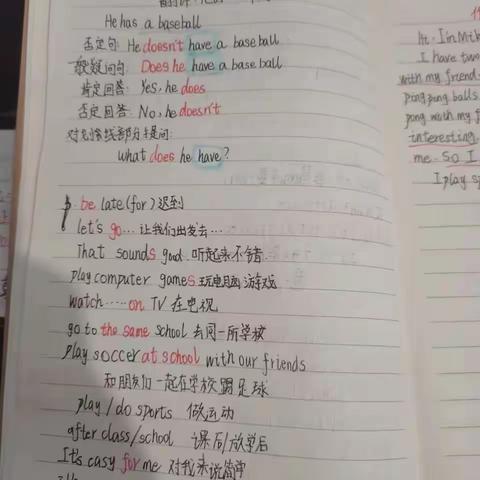 He has a baseball
否定句: He doesn't have a baseball
一般疑问句: Does he have a baseball
肯定回答: Yes, he does
否定回答: No, he doesn't
对划线部分提问:
what does he have?
be late (for) 迟到
let's go... 让我们出发去...
That sounds good. 听起来不错
play computer games 玩电脑游戏
watch ..... on TV 在电视
go to the same school 去同一所学校
play soccer at school with our friends
和朋友们一起在学校踢足球
play / do sports 做运动
after class/school 课后/放学后
It's easy for me 对我来说简单
hi. I'm Mik
I have two
with my friend
ping ping balls
pong with my f
interesting.
me. So I
I play sp